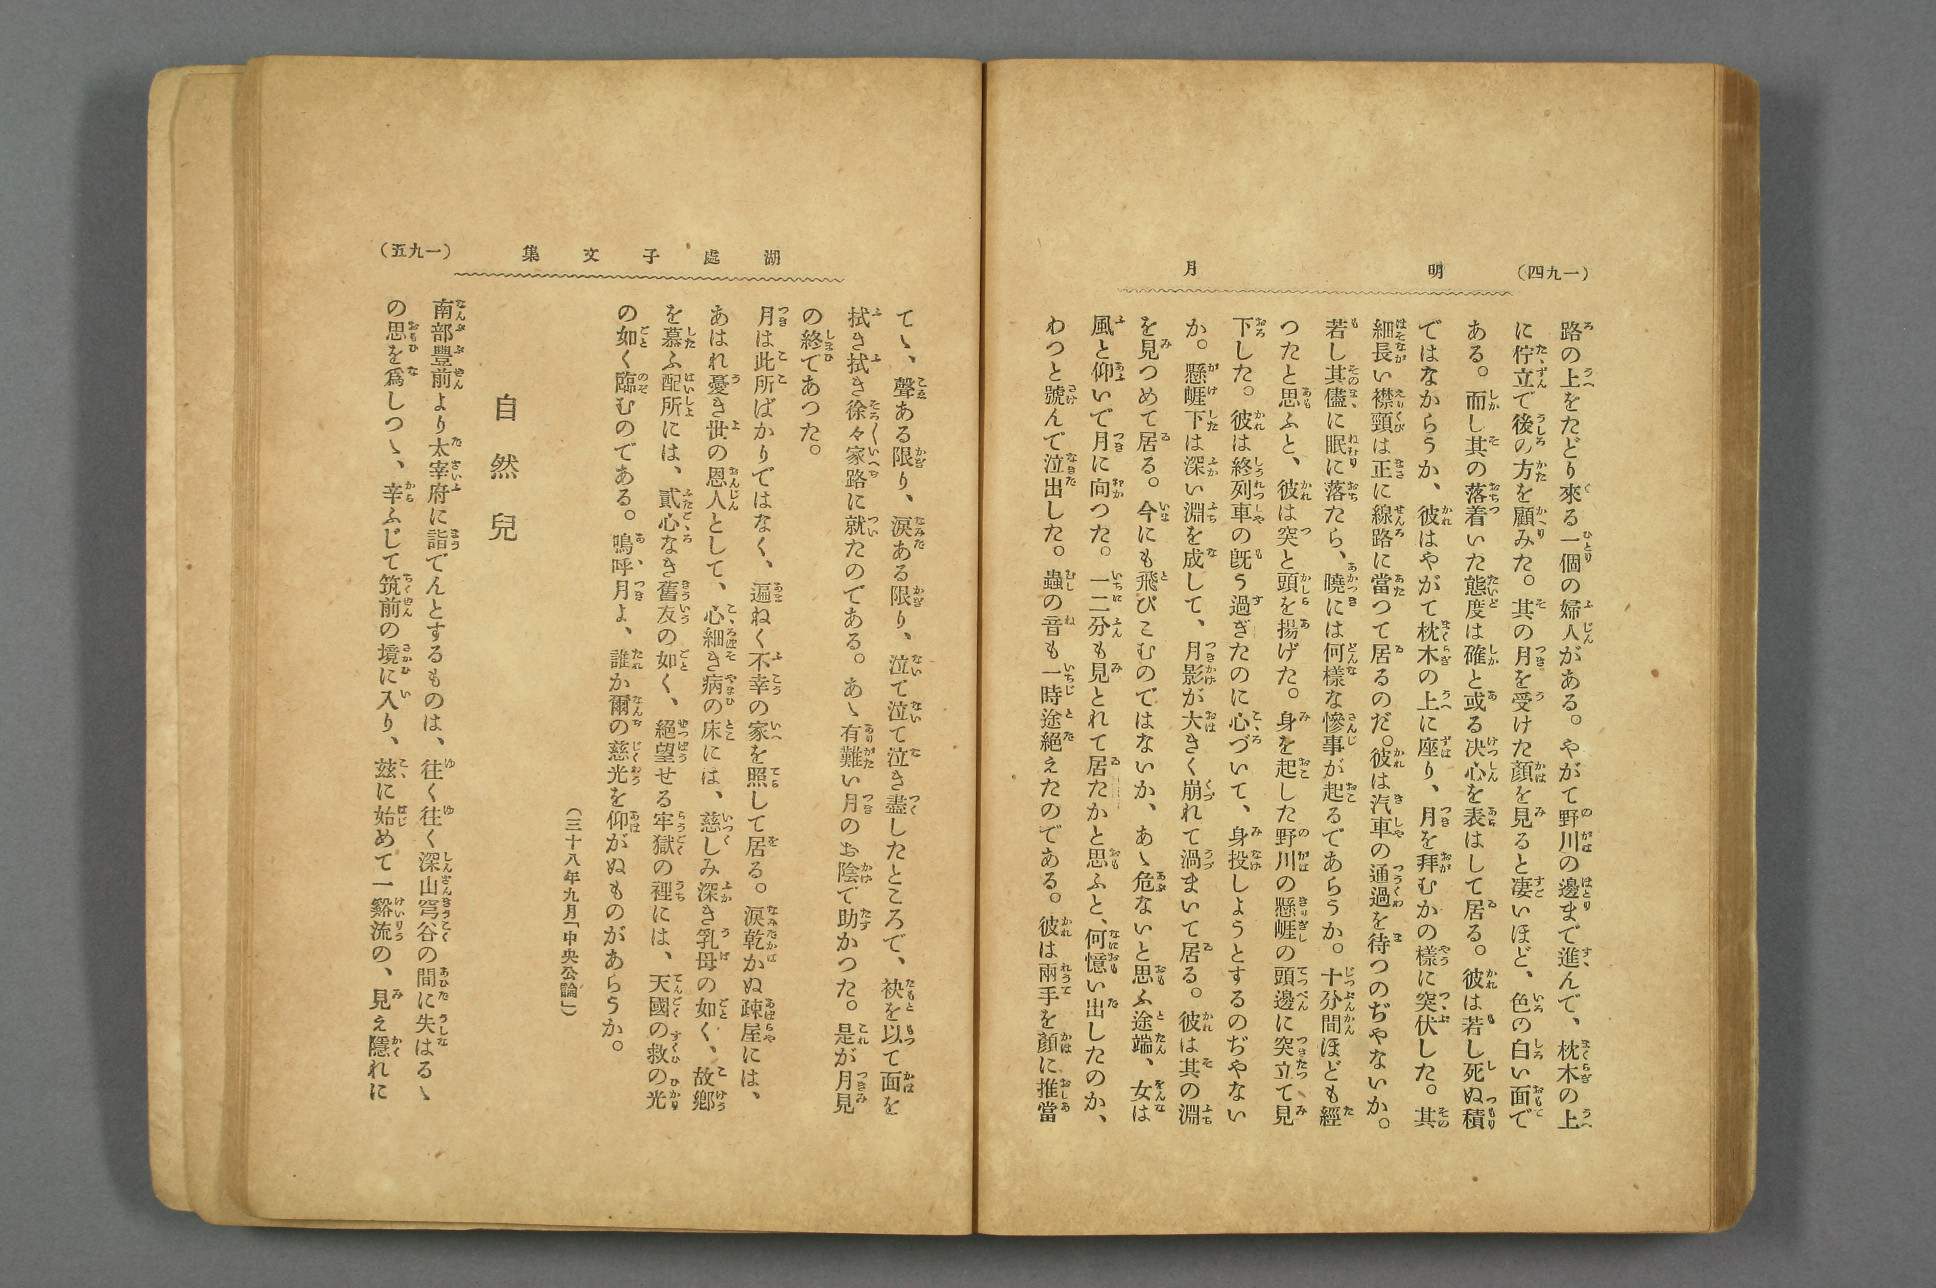 (一九四)
明月
路の上をたどり來る一個の婦人がある。やがて野川の邊まで進んで、枕木の上
に佇立で後の方を顧みた。其の月を受けた顔を見ると凄いほど、色の白い面で
ある。而し其の落着いた態度は確と或る决心を表はして居る。彼は若し死ぬ積
ではなからうか、彼はやがて枕木の上に座り、月を拜むかの樣に突伏した。其
細長い襟頸は正に線路に當つて居るのだ。彼は汽車の通過を待つのぢやないか。
若し其儘に眠に落たら、曉には何樣な慘事が起るであらうか。十分間ほども經
つたと思ふと、彼は突と頭を揚げた。身を起した野川の懸崕の頭邊に突立て見
下した。彼は終列車の旣う過ぎたのに心づいて、身投しようとするのぢやない
か。懸崕下は深い淵を成して、月影が大きく崩れて渦まいて居る。彼は其の淵
を見つめて居る。今にも飛びこむのではないか、あゝ危ないと思ふ途端、女は
風と仰いで月に向つた。一二分も見とれて居たかと思ふと、何憶い出したのか、
わつと號んで泣出した。蟲の音も一時途絕えたのである。彼は兩手を顏に推當
湖處子文集
(一九五)
てゝ、聲ある限り、淚ある限り、泣て泣て泣き盡したところで、袂を以て面を
拭き拭き徐々家路に就たのである。あゝ有難い月のお陰で助かつた。是が月見
の終であつた。
月は此所ばかりではなく、遍ねく不幸の家を照して居る。淚乾かぬ疎屋には、
あはれ憂き世の恩人として、心細き病の床には、慈しみ深き乳母の如く、故鄕
を慕ふ配所には、貳心なき舊友の如く、絕望せる牢獄の裡には、天國の救の光
の如く臨むのである。嗚呼月よ、誰か爾の慈光を仰がぬものがあらうか。
(三十八年九月「中央公論」)
自然兒
南部豐前より太宰府に詣でんとするものは、往く往く深山穹谷の間に失はるゝ
の思を爲しつゝ、辛ふじて筑前の境に入り、玆に始めて一谿流の、見え隱れに